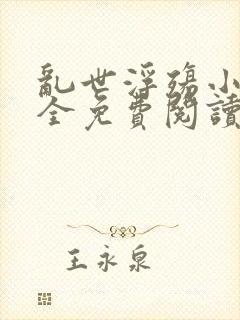 亂世浮殤小
全免費閱讀
王永泉